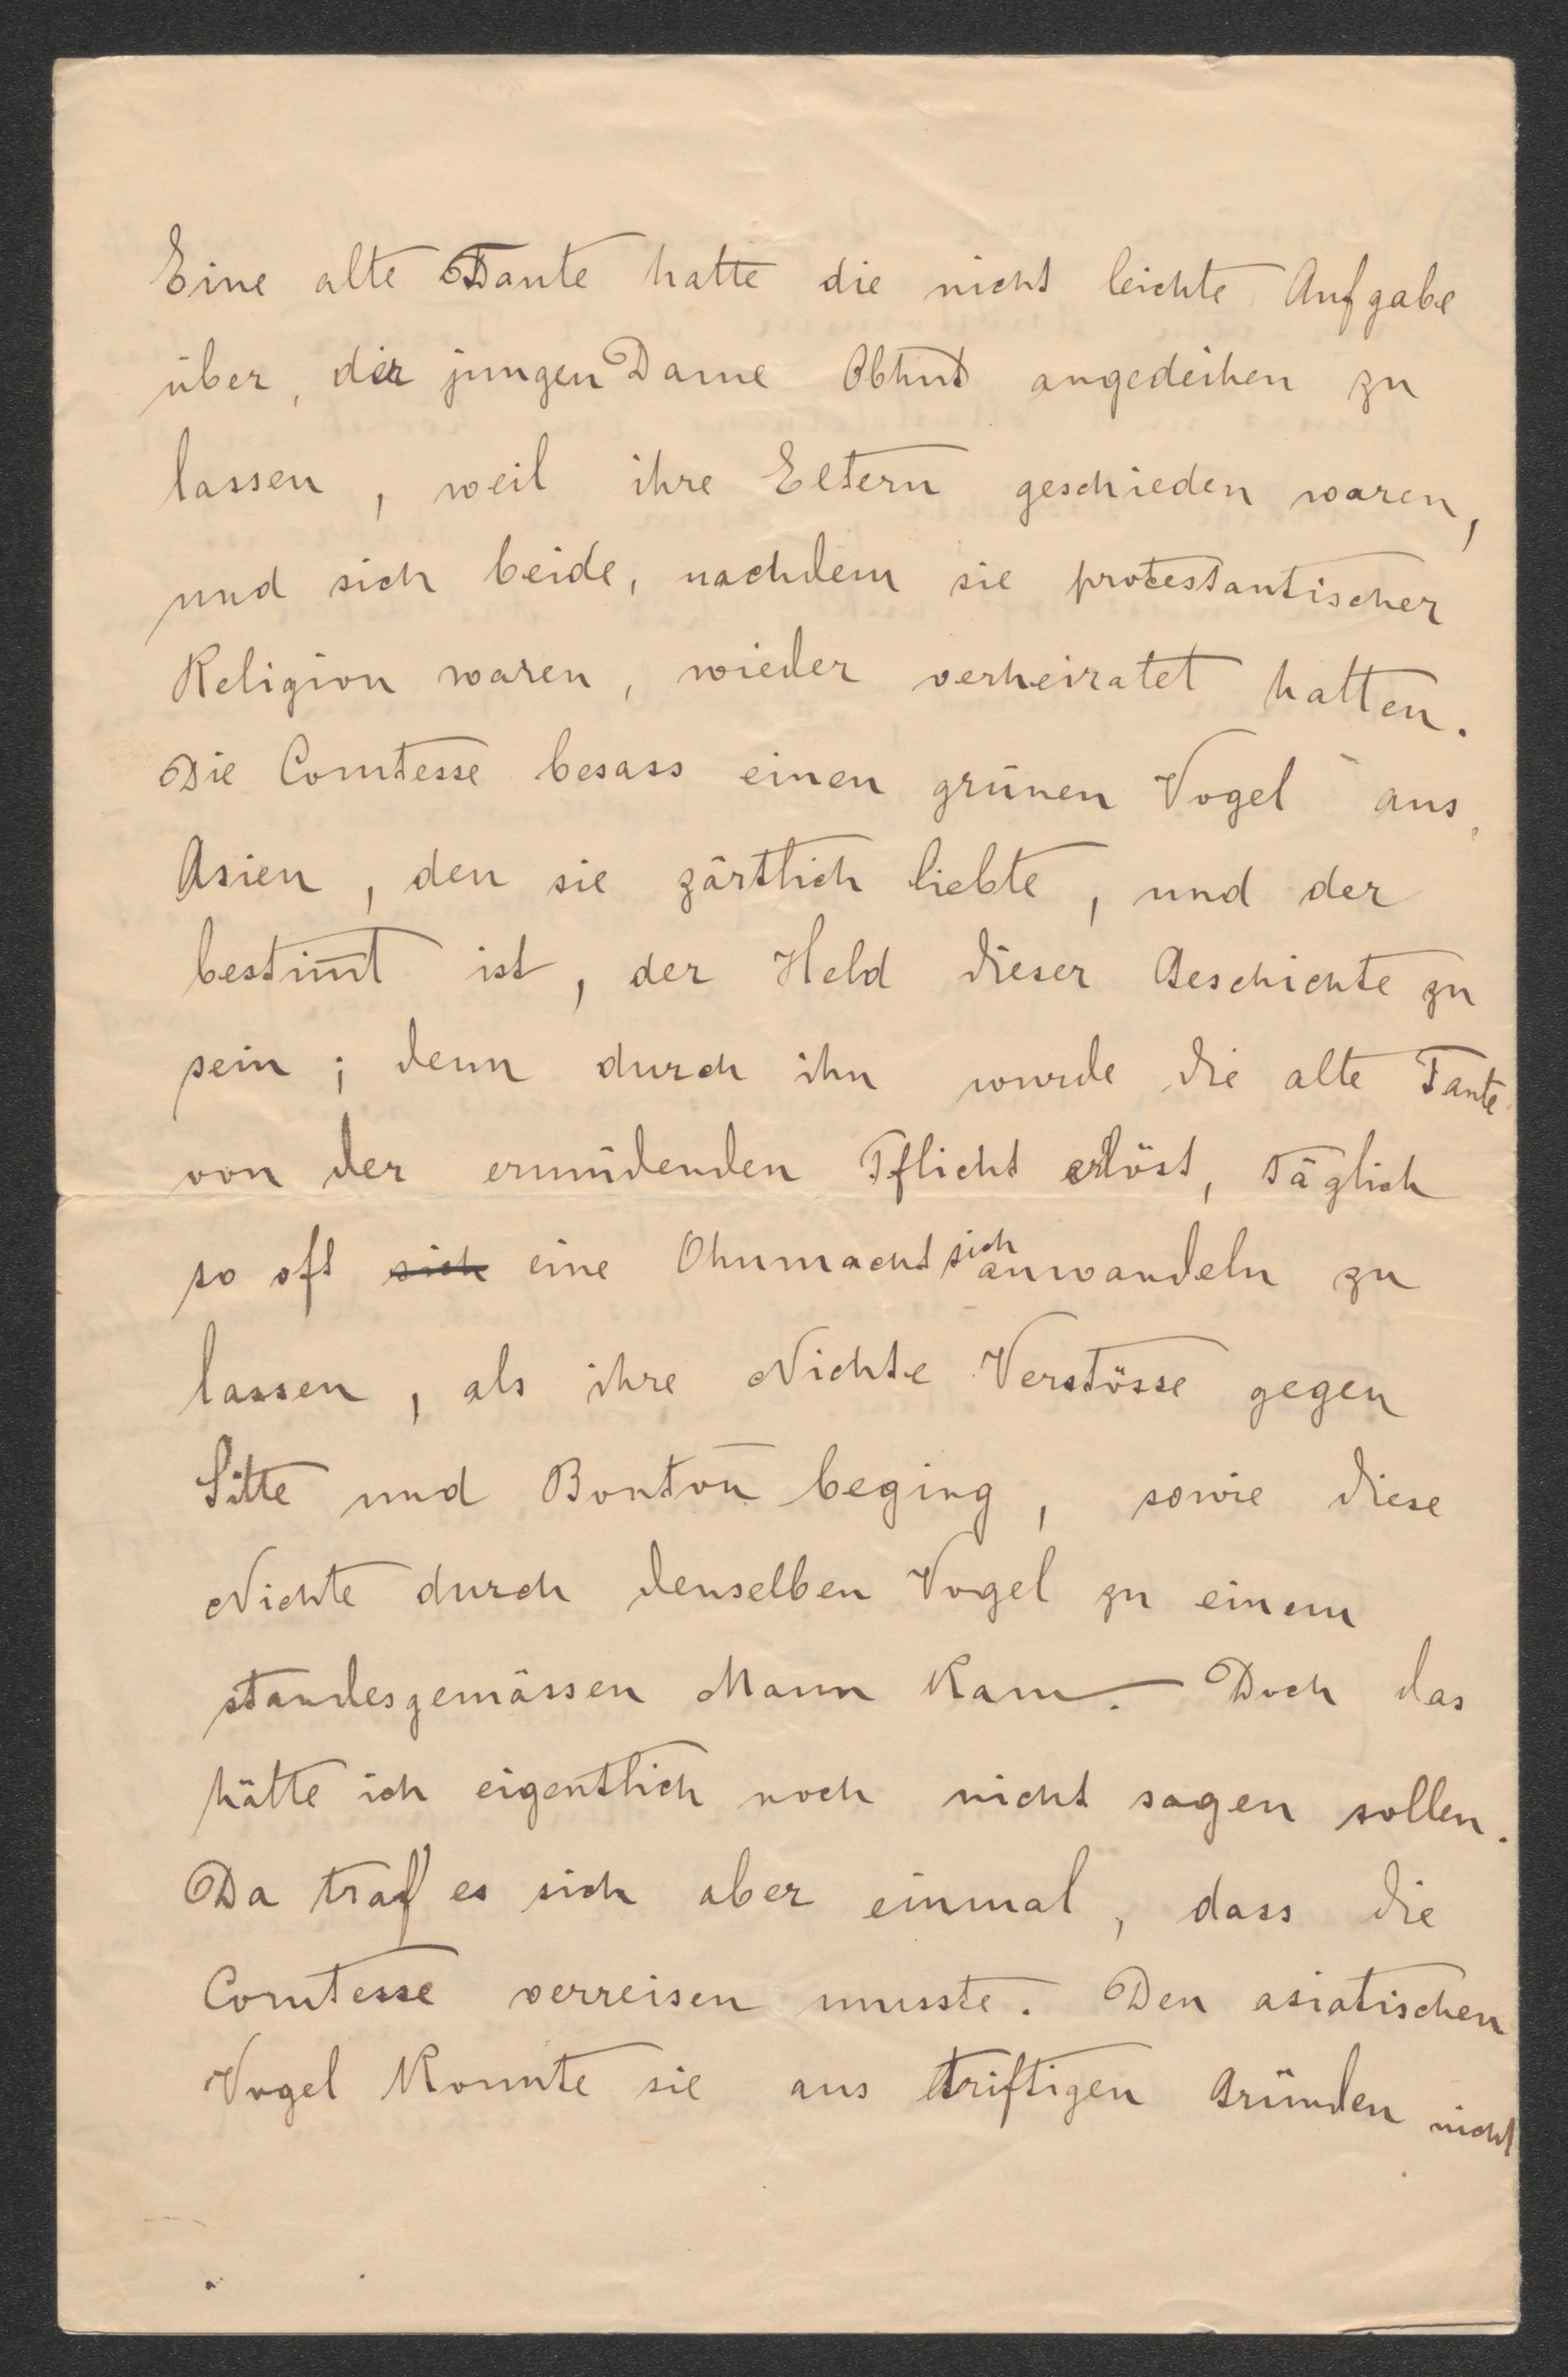 Eine alte Tante hatte die nicht leichte Aufgabe
über, der jungen Dame Obhut angedeihen zu
lassen, weil ihre Eltern geschieden waren,
und sich beide, nachdem sie protestantischer
Religion waren, wieder verheiratet hatten.
Die Comtesse besass einen grünen Vogel aus
Asien, den sie zärtlich liebte, und der
bestim̅t ist, der Held dieser Geschichte zu
sein; denn durch ihn wurde die alte Tante
von der ermüdenden Pflicht erlöst, täglich
so oft sich eine Ohnmacht sich anwandeln zu
lassen, als ihre Nichte Verstösse gegen
Sitte und Bonton beging, sowie diese
Nichte durch denselben Vogel zu einem
standesgemässen Mann kam. – Doch das
hätte ich eigentlich noch nicht sagen sollen.
Da traf es sich aber einmal, dass die
Comtesse verreisen musste. Den asiatischen
Vogel konnte sie aus triftigen Gründen nicht